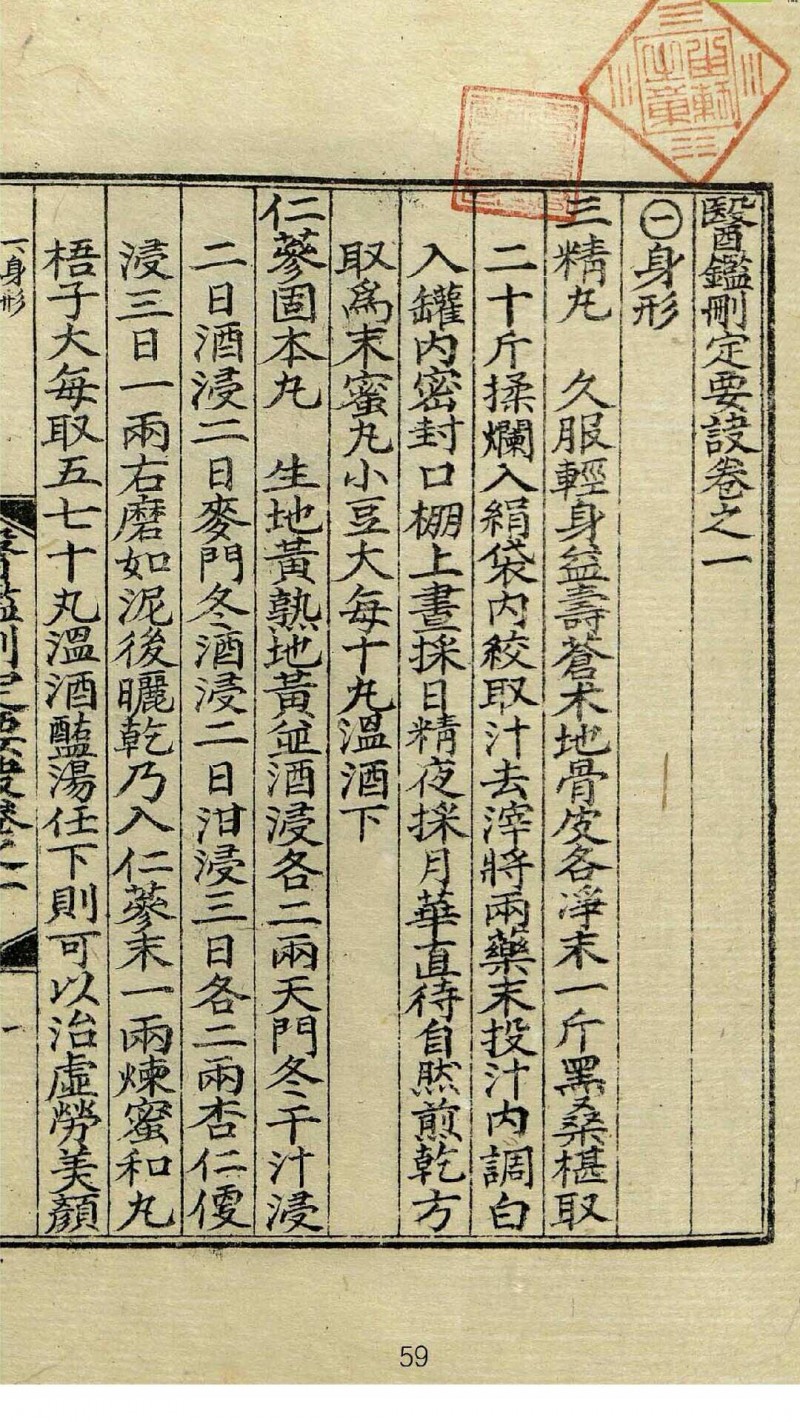 醫鑑刪定要訣卷之一
㊀身形
三精丸 久服輕身益壽蒼朮地骨皮各淨末一斤黑桑椹取
二十斤揉爛入絹袋內絞取汁去滓將兩藥末投汁內調勻
入罐內密封口棚上晝採日精夜採月華直待自然煎乾方
取爲末蜜丸小豆大每十丸溫酒下
仁蔘固本丸 生地黃熟地黃並酒浸各二兩天門冬干汁浸
二日酒浸二日麥門冬酒浸二日泔浸三日各二兩杏仁
浸三日一兩右磨如泥後曬乾乃入仁蔘末一兩煉蜜和丸
梧子大每取五七十丸溫酒鹽湯任下則可以治虛勞美顏
一身形
一
59